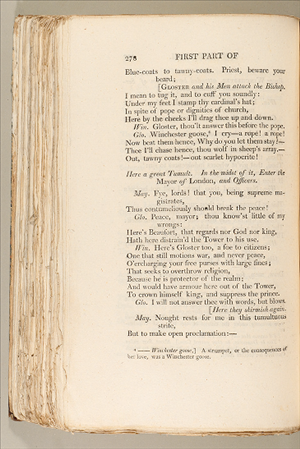 278 FIRST PART OF
Blue-coats to tawny-coats. Priest, beware your
beard;
[GLOSTER and his Men attack the Bishop.
I mean to tug it, and to cuff you soundly:
Under my feet I stamp thy cardinal's hat;
In spite of pope or dignities of church,
Here by the cheeks I'll drag thee up and down.
Win. Gloster, thou'lt answer this before the pope.
Glo. Winchester goose,* I cry—a rope! a rope!
Now beat them hence, Why do you let them stay?—
Thee I'll chase hence, thou wolf in sheep's array.—
Out, tawny coats!—out scarlet hypocrite!
Here a great Tumult. In the midst of it, Enter the
Mayor of London, and Officers.
May. Fye, lords! that you, being supreme ma-
gistrates,
Thus contumeliously should break the peace!
Glo. Peace, mayor; thou know'st little of my
wrongs:
Here's Beaufort, that regards nor God nor king,
Hath here distrain'd the Tower to his use.
Win. Here's Gloster too, a foe to citizens;
One that still motions war, and never peace,
O'ercharging your free purses with large fines;
That seeks to overthrow religion,
Because he is protector of the realm;
And would have armour here out of the Tower,
To crown himself king, and suppress the prince.
Glo. I will not answer thee with words, but blows.
[Here they skirmish again.
May. Nought rests for me in this tumultuous
strife,
But to make open proclamation:—
* —— Winchester goose,] A strumpet, or the consequences of
her love, was a Winchester goose.